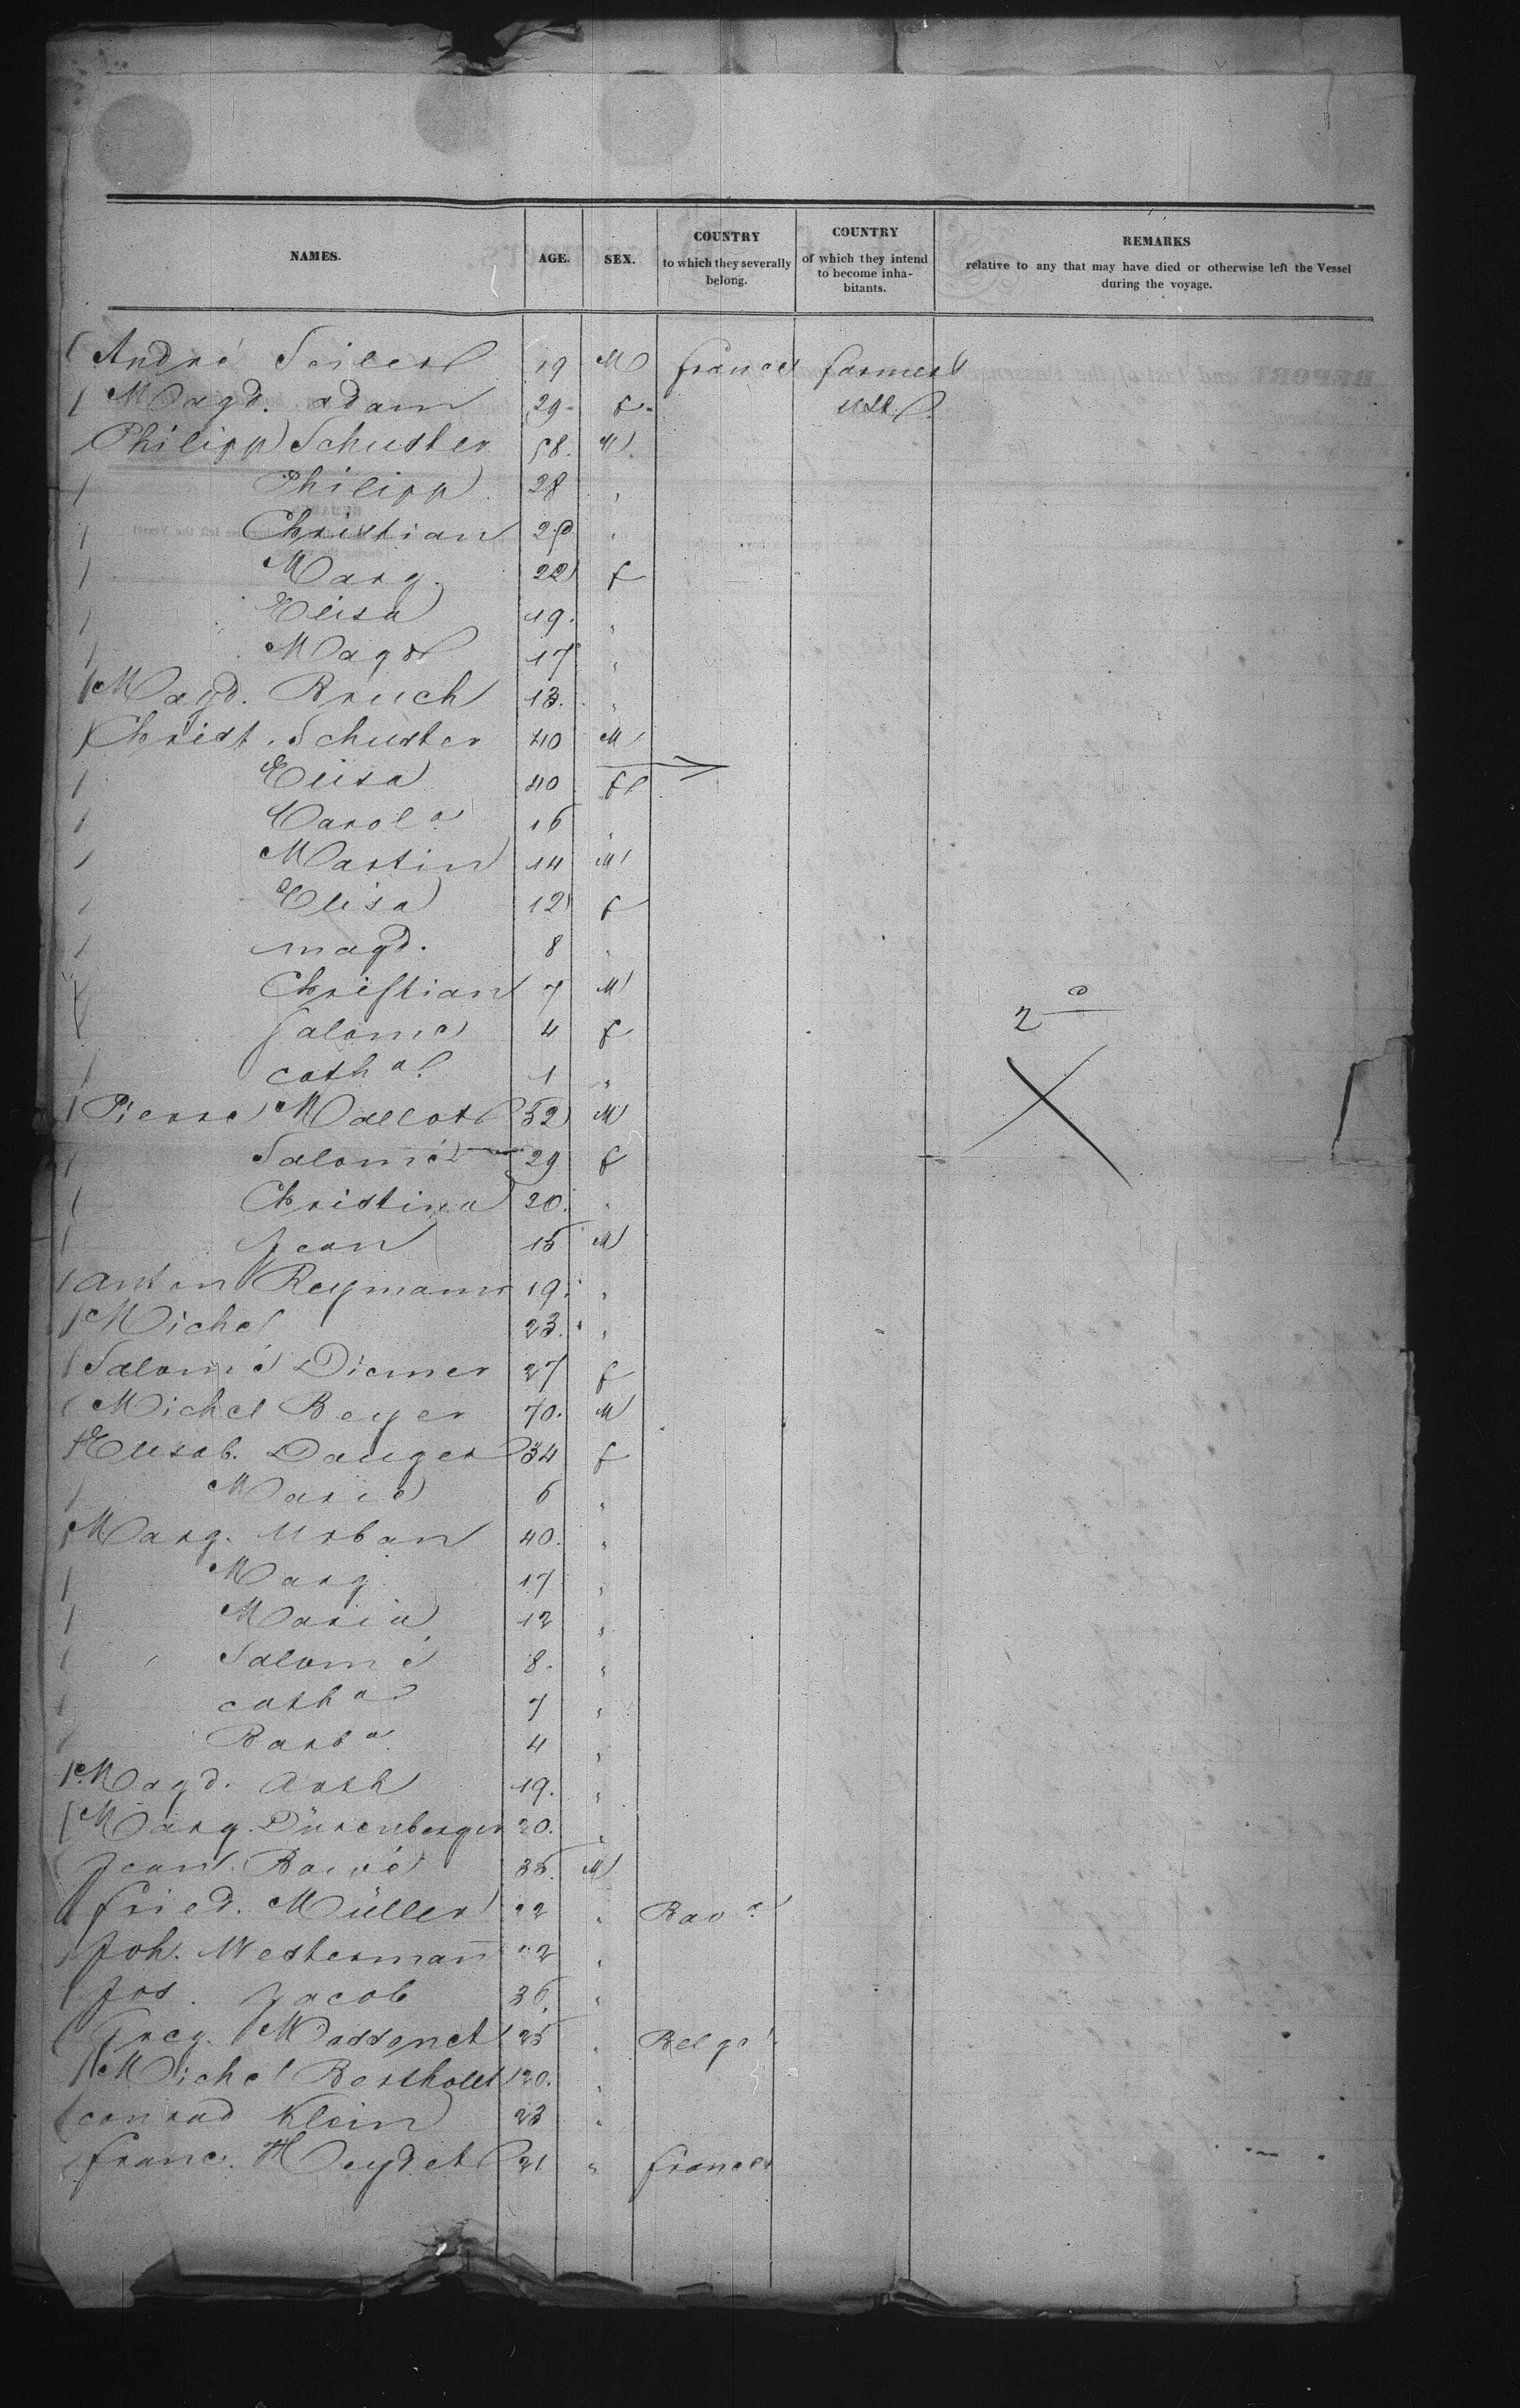 NAMES. AGE. SEX. COUNTRY to which they severally belong. COUNTRY of which they intend to become inhabitants. REMARKS relative to any that may have died or otherwise left the Vessel during the voyage.
André Seiler 19 M france farmer
Magd. adam 29 f
Philipp Schuster 58. M
Philipp 28 "
Christian 25 "
Marg. 22 f
Elisa 19. "
Magd 17 "
Magd. Bruch 13. "
Christ. Schuster 40 M
Elisa 40 f
Carola 16 "
Martin 14 M
Elisa 12 f
magd. 8 "
Christian 7 M
Salome 4 f
catha. 1 "
Pierre Mallot 52 M
Salomé 29 f
Christina 20. "
Jean 15 M
Anton Reymann 19. "
Michel 23. "
Salomé Diemer 27 f
Michel Beyer 70. M
Elisab. Dauger 34 f
Marie 6 "
Marg. Urban 40. "
Marg 17 "
Maria 12 "
Salomé 8. "
catha 7 "
Barba 4 "
Magd. Arth 19. "
Marg. Dürenberger 20. "
Jean 35. M
fried. Müller 22 " Bava.
Joh. Westermann 22 "
Jos. Jacob 36. "
Greg. Massonet 25 " Belge
Michel Berthold 20. "
conrad Klein 23 "
franc. Heydel 21 " france
2